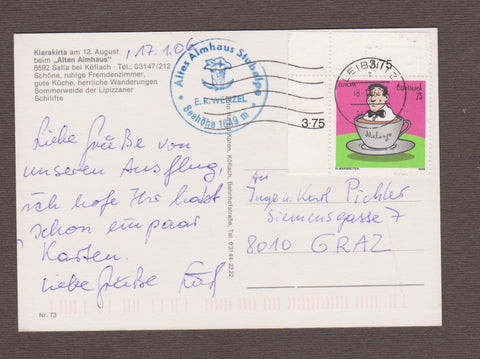 Klarakirta am 12. August
beim „Alten Almhaus"
8592 Salla bei Köflach · Tel.: 03147/212
Schöne, ruhige Fremdenzimmer,
gute Küche, herrliche Wanderungen
Sommerweide der Lipizzaner
Schilifte
17.1.06
Altes Almhaus Stubalpe
E. R. WENZEL
Seehöhe 1649 m
3·75
3·75
LEIBNITZ
EUROPA
Österreich
75
Melange
Liebe Grüße von
unserem Ausflug,
ich hofe Ihr habt
schon ein paar
Karten.
Liebe Grüße
An
Inge u. Karl Pichler
Siemensgasse 7
8010 GRAZ
Köflach, Bahnhofstraße, Tel. 03144-2222
Nr. 73